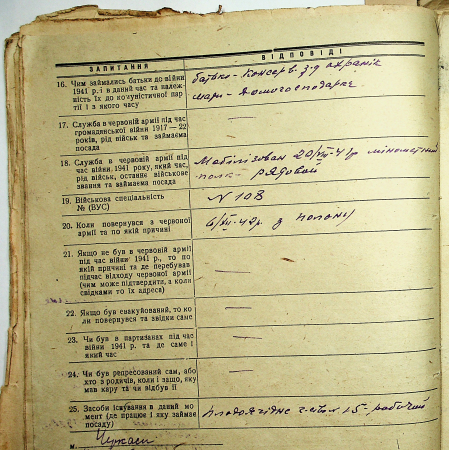 ЗАПИТАННЯ
ВІДПОВІДІ
16. Чим займались батьки до війни
1941 р. і в даний час та належ-
ність їх до комуністичної пар-
тії і з якого часу
батько - консерв. з-д охранік
мати - домогосподарка
17. Служба в червоній армії під час
громадянської війни 1917 — 22
років, рід військ та займаєма
посада
18. Служба в червоній армії під
час війни 1941 року, який час,
рід військ, останнє військове
звання та займаєма посада
Мобілізован 20/VII-41р мінометний
полк - рядовой
19. Військова спеціальність
№ (ВУС)
N 108
20. Коли повернувся з червоної
армії та по якій причині
з полону
21. Якщо не був в червоній армії
під час війни 1941 р., то по
якій причині та де перебував
підчас відходу червоної армії
(чим може підтвердити, а коли
свідками то їх адреса)
22. Якщо був евакуйований, то ко
ли повернувся та звідки саме
23. Чи був в партизанах під час
війни 1941 р. та де саме і
який час
24. Чи був репресований сам, або
хто з родичів, коли і защо, яку
мав кару та чи відбув її
25. Засоби існування в даний мо-
мент (де працює і яку займає
посаду)
робочий
м. Черкаси